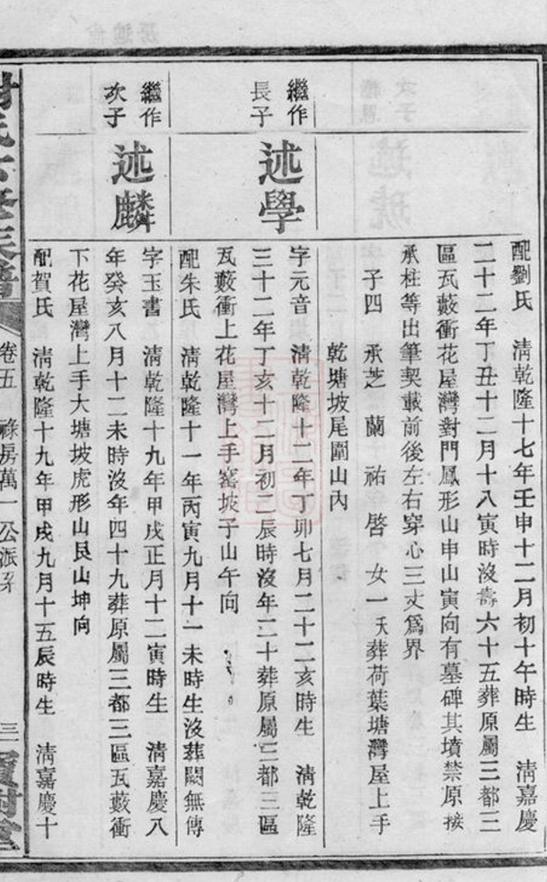 配劉氏　清乾隆十七年壬申十二月初十午時生　清嘉慶
二十二年丁丑十二月十八寅時沒壽六十五葬原屬三都三
區瓦藪衝花屋灣對門鳳形山申山寅向有墓碑其墳禁原接
承柱等出筆契載前後左右穿心三丈爲界
子四　承芝　蘭　祐　啓　女一　殀葬荷葉塘灣屋上手
乾塘坡尾圍山內
繼作
長子
述學
字元音　清乾隆十二年丁卯七月二十二亥時生　清乾隆
三十二年丁亥十二月初二辰時沒年二十葬原屬三都三區
瓦藪衝上花屋灣上手窰坡子山午向
配朱氏　清乾隆十一年丙寅九月十一未時生沒葬闕無傳
繼作
次子
述麟
字玉書　清乾隆十九年甲戌正月十二寅時生　清嘉慶八
年癸亥八月十二未時沒年四十九葬原屬三都三區瓦藪衝
下花屋灣上手大塘坡虎形山艮山坤向
配賀氏　清乾隆十九年甲戌九月十五辰時生　清嘉慶十
卷五　祿房萬一公派牙　三